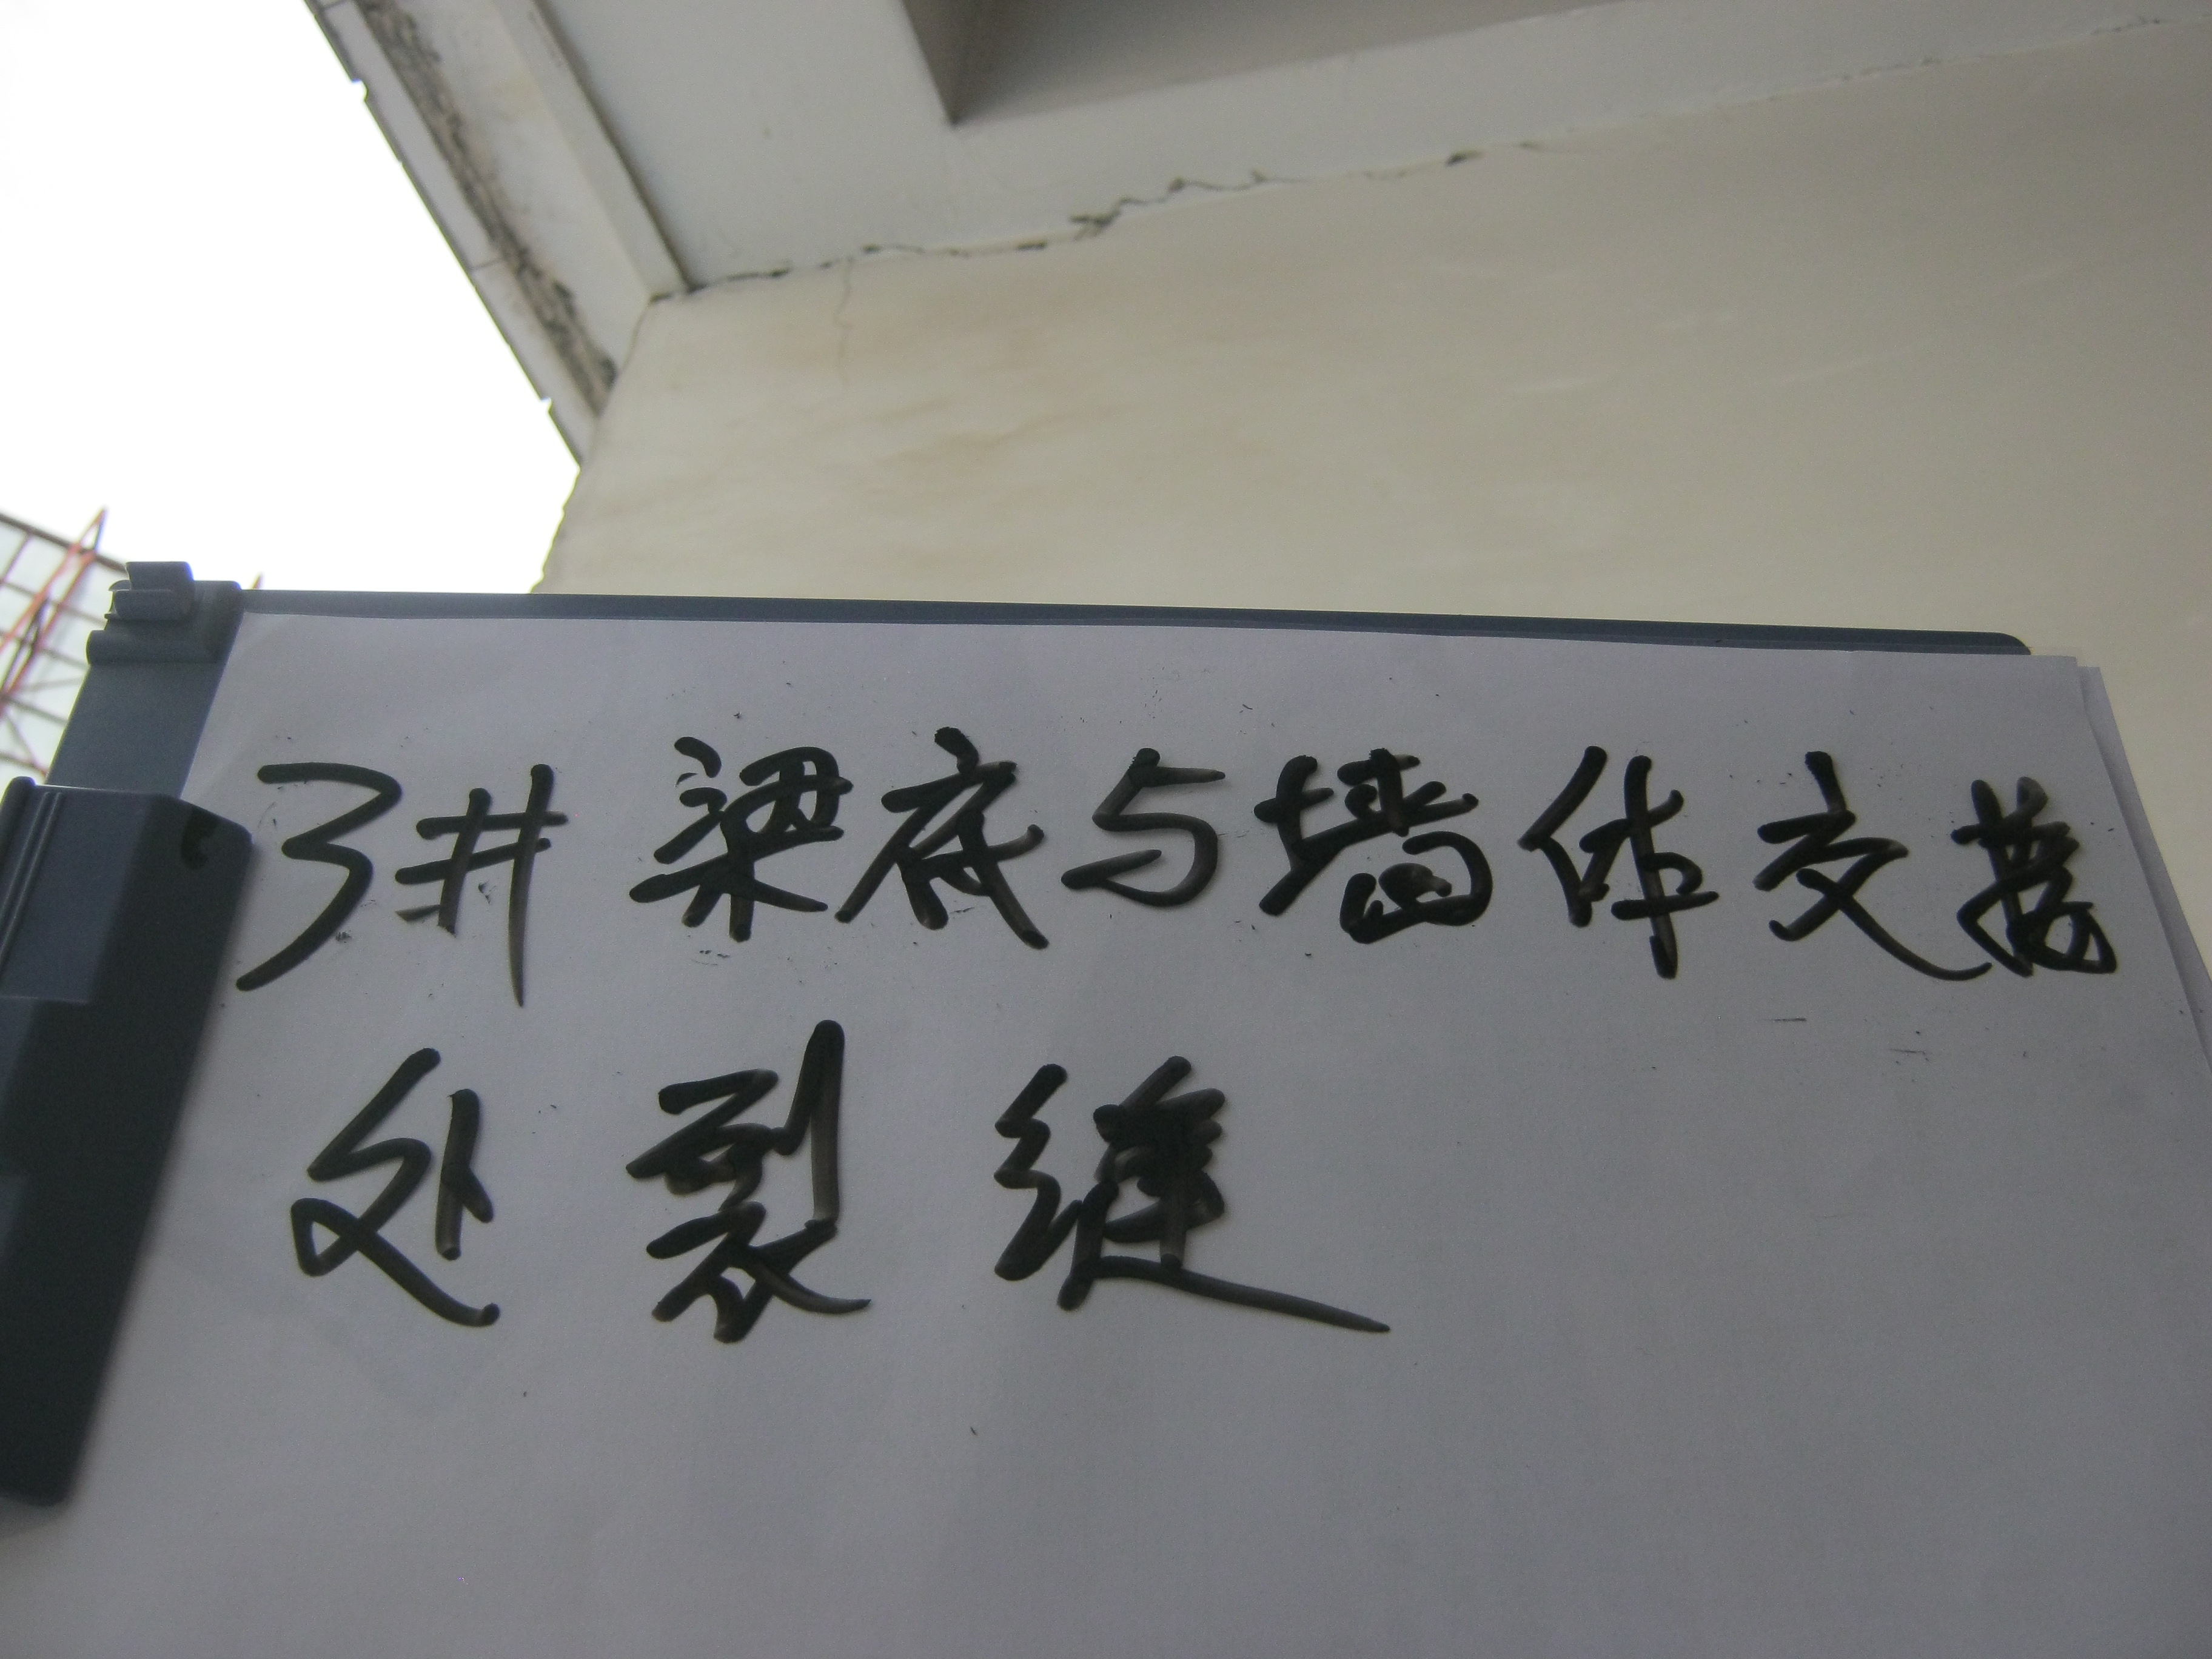 3# 梁底与墙体交接
处裂缝